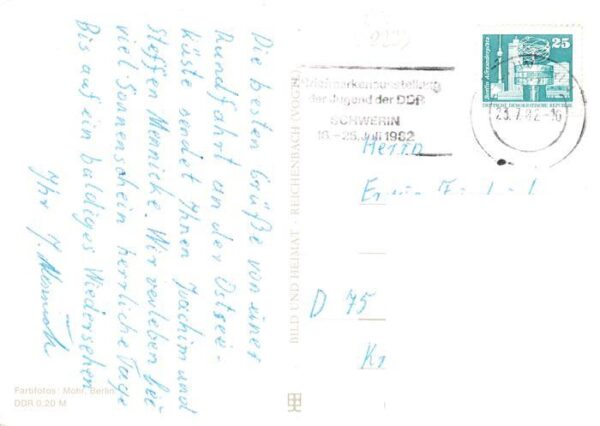 Die besten Grüße von einer
Rundfahrt an der Ostsee-
küste sendet Ihnen Joachim und
Steffen Mennicke. Wir verleben bei
viel Sonnenschein herrliche Tage
Bis auf ein baldiges Wiedersehen
Ihr J.
Farbfotos: Mohr, Berlin
DDR 0,20 M
BILD UND HEIMAT · REICHENBACH
25
Berlin, Alexanderplatz
DEUTSCHE DEMOKRATISCHE REPUBLIK
Briefmarkenausstellung
der Jugend der DDR
SCHWERIN
16.-25. Juli 1982
23.7.82-16
Herrn
D 75